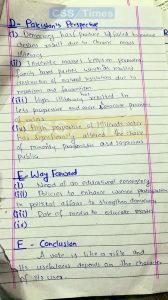 CSS Times
D - Pakistan's Perspective
(i) Democracy has failed to become
due to chronic mass
illiteracy
(ii) Illiterate masses keep on favouring
family based parties which results
of national institution due to
nepotism and favouritism
(iii) High illiteracy has resulted in
less progressive and more
of voting
(iv) High proportion of illiterate voter
has significantly affected the choice
of minority progressive and
public
E - Way Forward
(i) Need of an educational emergency
(ii) Drives to enhance women participation
in political affairs to strengthen democracy
(iii) Role of media to educate masses
(iv)
F - Conclusion
A vote is like a rifle and
its usefulness depends on the character
of its user.